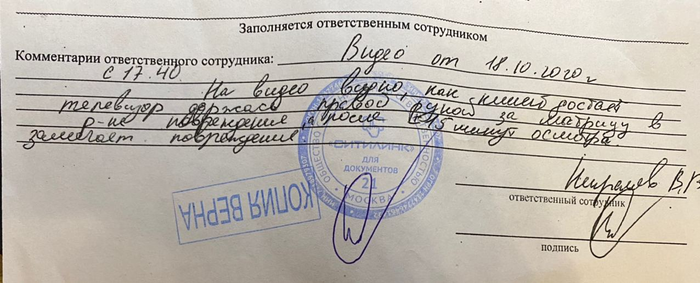 Заполняется ответственным сотрудником
Комментарии ответственного сотрудника: Видео от 18.10.2020г
с 17.40. На видео видно, как клиент достает
телевизор держась правой рукой за матрицу в
р-не повреждения, а после 15 минут осмотра
замечает повреждение.
"СИТИЛИНК"
ДЛЯ
ДОКУМЕНТОВ
21
МОСКВА
КОПИЯ ВЕРНА
ответственный сотрудник
подпись